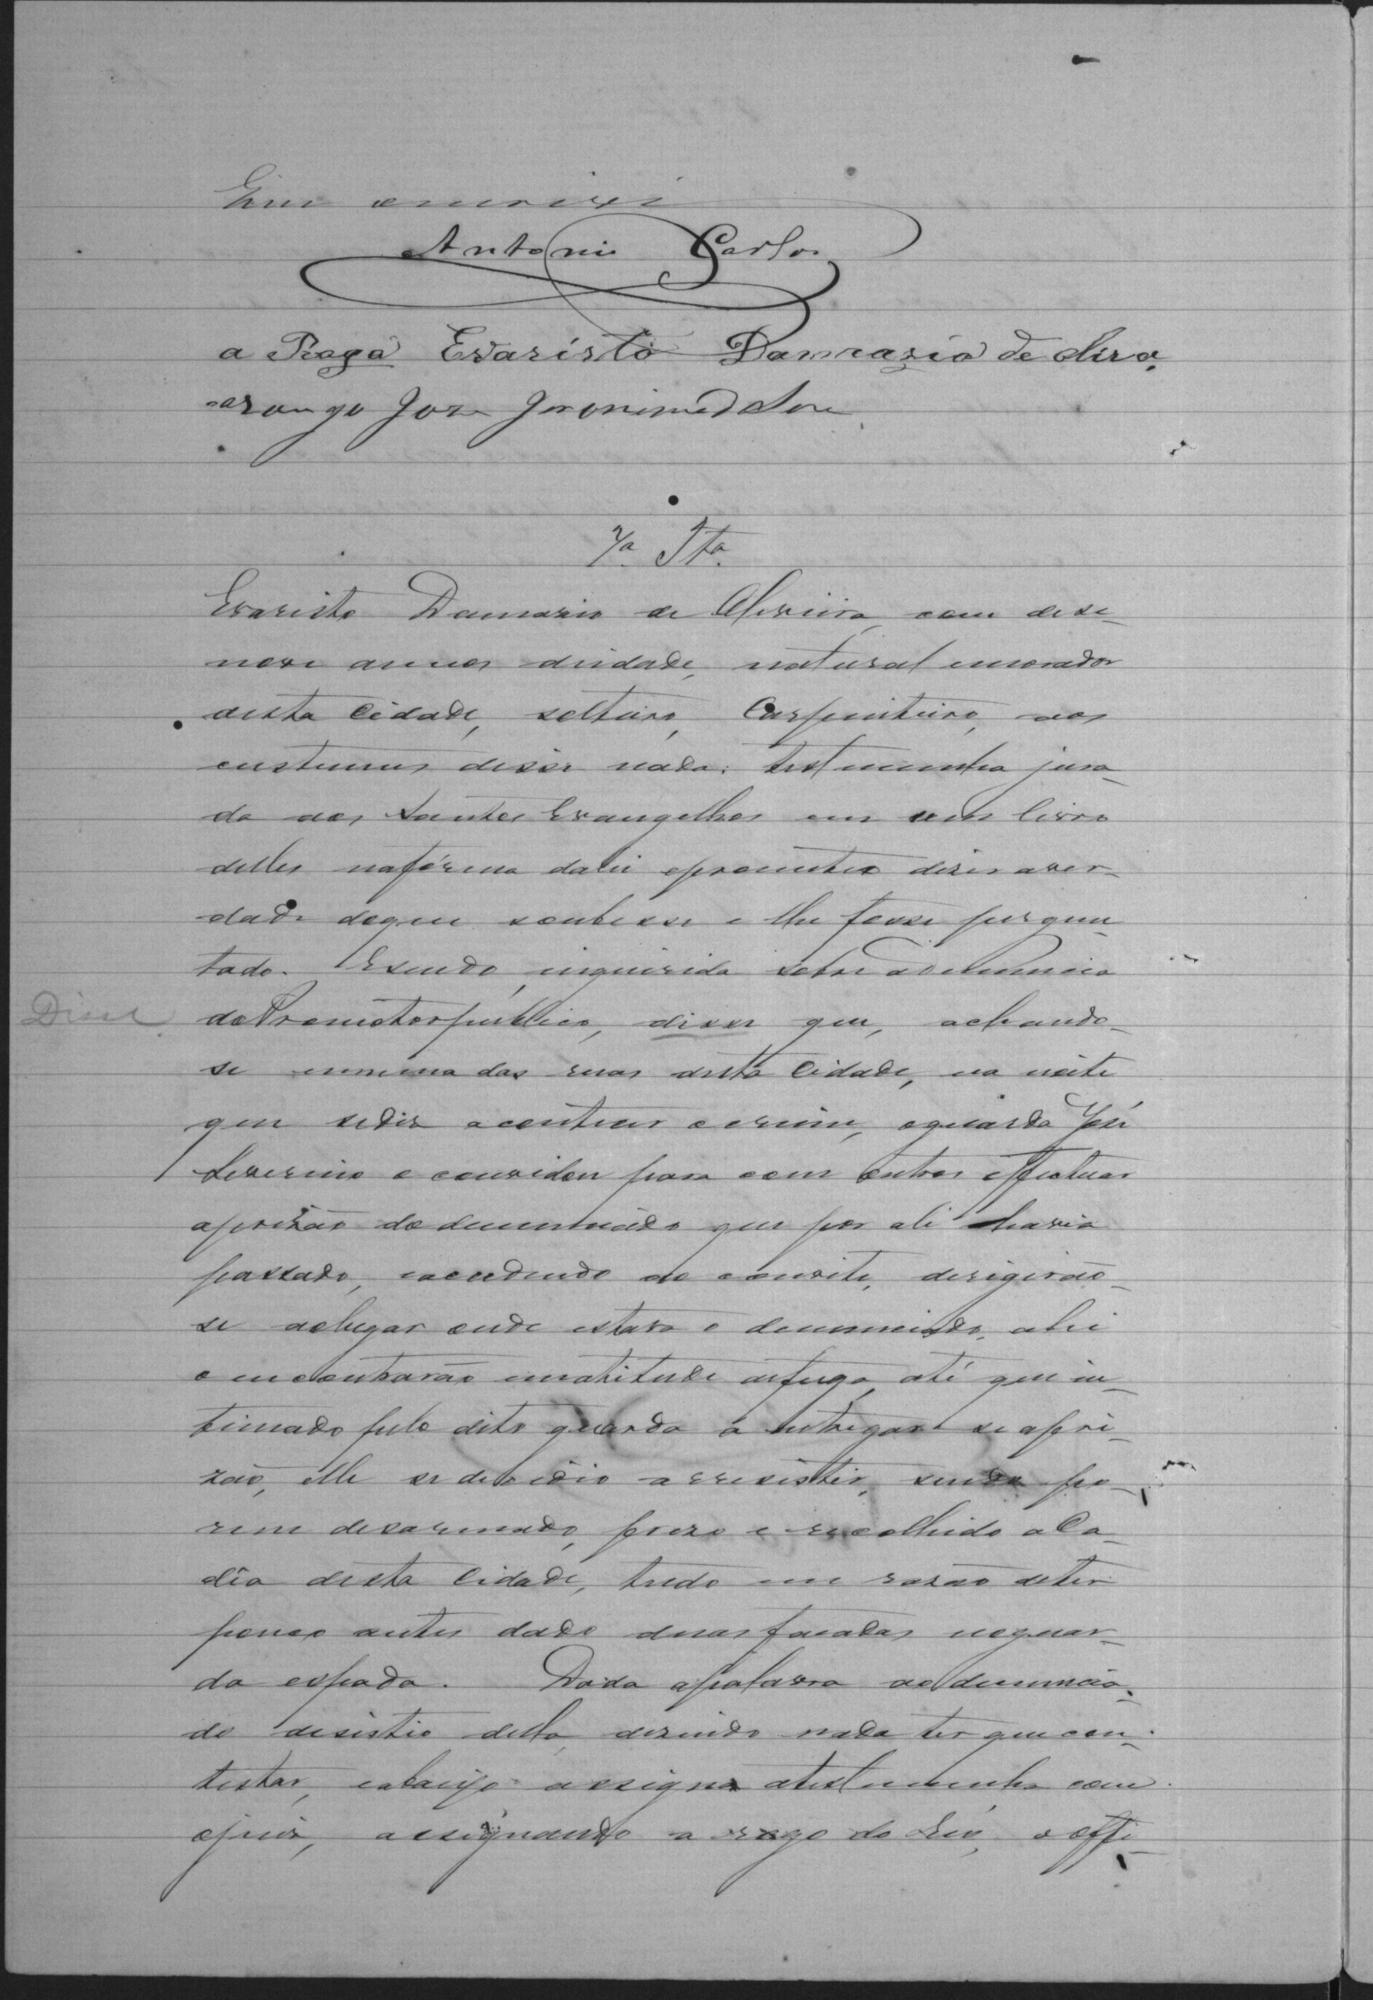 Antonio Carlos
a Roga Evaristo Damazio de Olivra
arougo Joze Jeronimo d
7ª Ttª
Evaristo Damazio de Oliveira, com dese-
nove annos didade, natural emorador
desta Cidade, solteiro, Carpinteiro, aos
custumes diser nada; testemunha jura-
da aos Santos Evangelhos em um livro
delles nafórma dalei eprometeo diser aver-
dade doque soubesse e lhe fosse pergun-
tado. Esendo inquirida sobre adenuncia
Disse
doPromotorpublico, disse que, achando-
se emuma das ruas desta Cidade, na noite
que sedis acontecer ocrime, oguarda José
Severino o convidou para com outros effectuar
aprizão dodenunciado que por ali havia
passado, eaccedendo ao convite, dirigirão-
se aolugar onde estava o denunciado, ahi
o encontrarão ematitude defuga, até que in-
timado pelo dito guarda a entregar-se aprí-
zão, elle se decidio aresistir, sendo po-
rem desarmado, prezo e recolhido aCa-
dêa desta Cidade, tudo em razão deter
pouco antes dado duas facadas noguar-
da espada. Dada apalavra aodenuncia-
do desistio della, dizendo nada ter que con-
testar, eabaixo assigna atestemunha com
ojuiz, assignando a rogo do Réo, o offi-